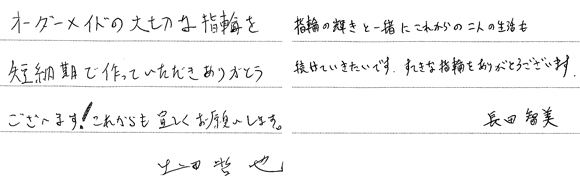 オーダーメイドの大切な指輪を
短納期で作っていただきありがとう
ございます!これからも宜しくお願いします。
哲也
指輪の輝きと一緒にこれからの二人の生活も
続けていきたいです。すてきな指輪をありがとうございます。
長田 智美